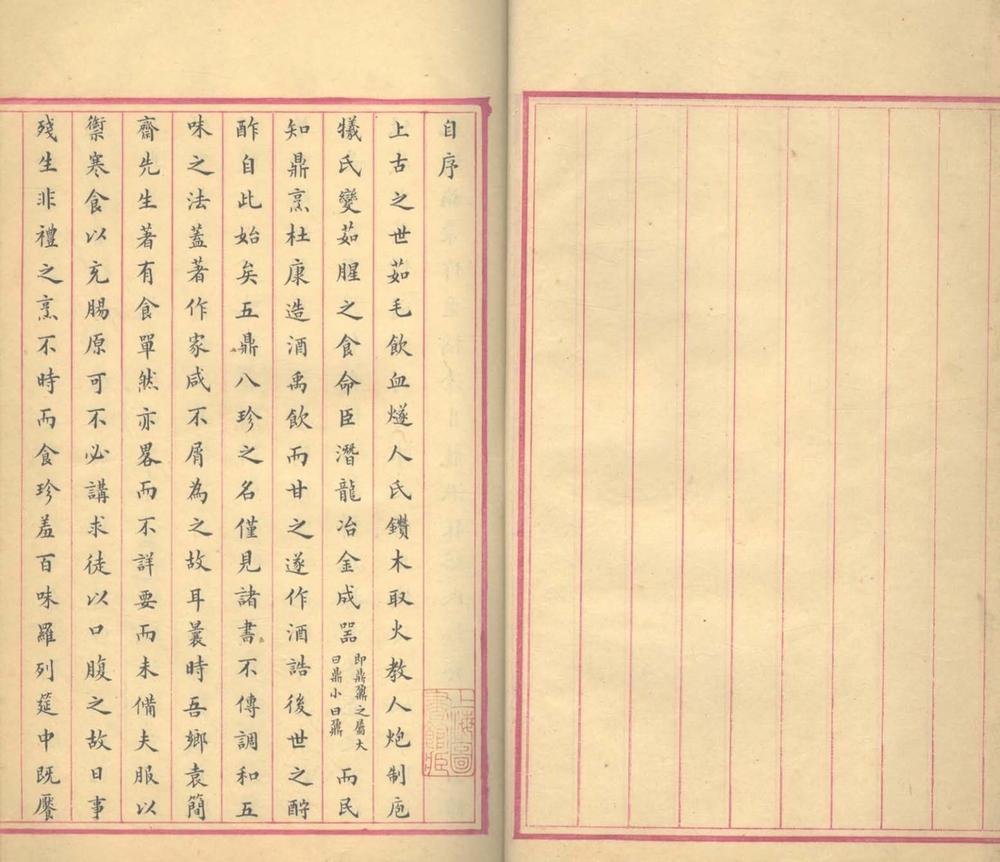 自序
上古之世茹毛飲血燧人氏鑽木取火教人炮制庖
犧氏變茹腥之食命臣潛龍冶金成器即鼎鼐之屬大曰鼎小曰鼐而民
知鼎烹杜康造酒禹飲而甘之遂作酒誥後世之酧
酢自此始矣五鼎八珍之名僅見諸書不傳調和五
味之法蓋著作家咸不屑為之故耳曩時吾鄉袁簡
齋先生著有食單然亦畧而不詳要而未備夫服以
禦寒食以充腸原可不必講求徒以口腹之故日事
殘生非禮之烹不時而食珍羞百味羅列筵中既饜
上海圖書館藏